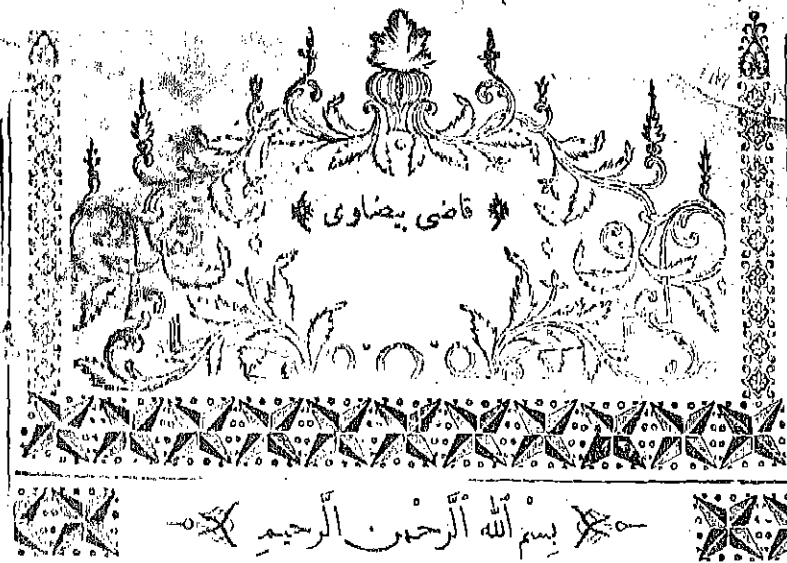 ﴿ قاضى بيضاوى ﴾
بِسْمِ اللّٰهِ الرَّحْمٰنِ الرَّحِيمِ